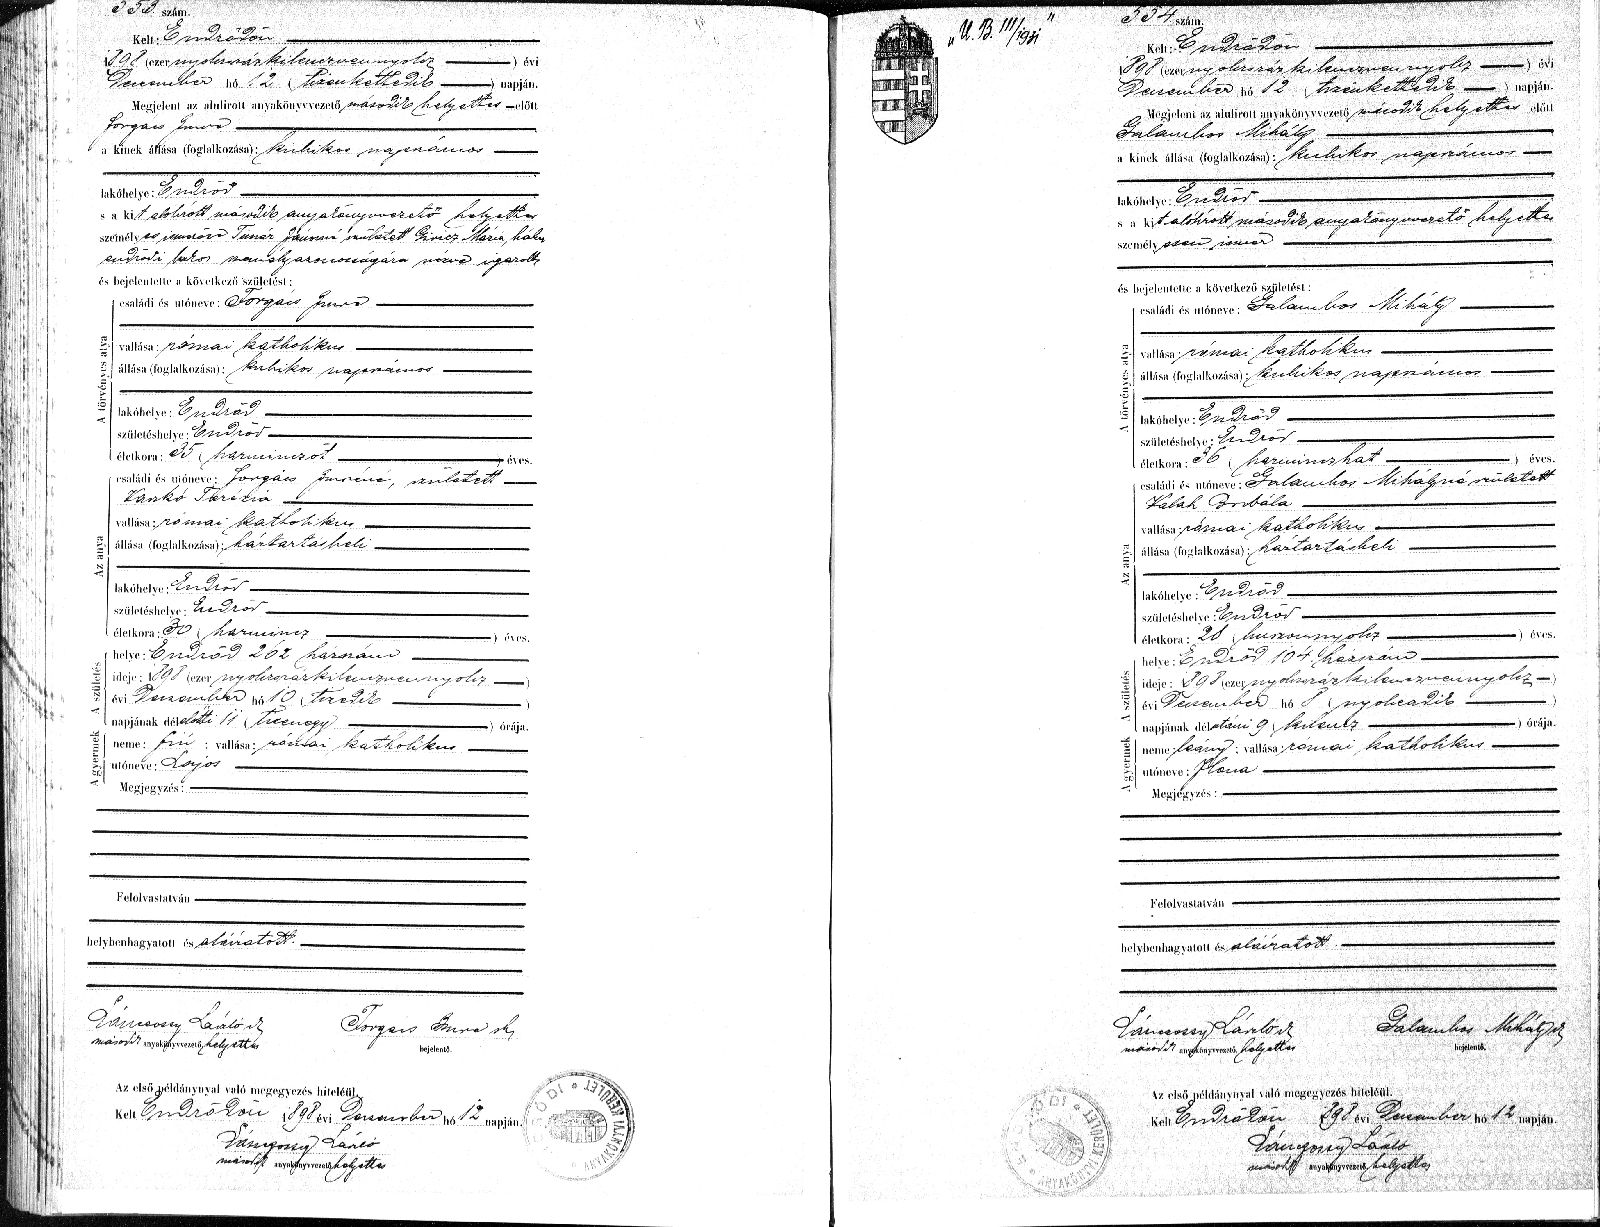 553 szám.
Kelt: Endrődön
1898 (ezer nyolczszázkilenczvennyolcz) évi
Deczember hó 12 (tizenkettedik) napján.
Megjelent az alulirott anyakönyvvezető második helyettes előtt
Forgács Imre
a kinek állása (foglalkozása): kubikos napszámos
lakóhelye: Endrőd
s a kit alólirott második anyakönyvvezető helyettes
személyes Tímár születet Mária
endrődi lakos
és bejelentette a következő születést:
A törvényes atya
családi és utóneve: Forgács Imre
vallása: római katholikus
állása (foglalkozása): kubikos napszámos
lakóhelye: Endrőd
születéshelye: Endrőd
életkora: 35 (harminczöt) éves.
Az anya
családi és utóneve: Forgács Imréné, született
Vaskó Terézia
vallása: római katholikus
állása (foglalkozása): háztartásbeli
lakóhelye: Endrőd
születéshelye: Endrőd
életkora: 30 (harmincz) éves.
A születés
helye: Endrőd 202 házszám
ideje: 1898 (ezer nyolczszázkilenczvennyolcz)
évi Deczember hó 10 (tizedik)
napjának délelőtti 11 (tizenegy) órája.
A gyermek
neme: fiú; vallása: római katholikus
utóneve: Lajos
Megjegyzés:
Felolvastatván
helybenhagyatott és aláiratott.
László
második anyakönyvvezető helyettes
Forgács Imre sk
bejelentő.
Az első példánynyal való megegyezés hiteléül.
Kelt Endrődön 1898 évi Deczember hó 12 napján.
László
második anyakönyvvezető helyettes
"U. B. III/1931"
554 szám.
Kelt: Endrődön
1898 (ezer nyolczszázkilenczvennyolcz) évi
Deczember hó 12 (tizenkettedik) napján.
Megjelent az alulirott anyakönyvvezető második helyettes előtt
Galambos Mihály
a kinek állása (foglalkozása): kubikos napszámos
lakóhelye: Endrőd
s a kit alólirott második anyakönyvvezető helyettes
személyesen ismer
és bejelentette a következő születést:
A törvényes atya
családi és utóneve: Galambos Mihály
vallása: római katholikus
állása (foglalkozása): kubikos napszámos
lakóhelye: Endrőd
születéshelye: Endrőd
életkora: 36 (harminczhat) éves.
Az anya
családi és utóneve: Galambos Mihályné született
Valah Borbála
vallása: római katholikus
állása (foglalkozása): háztartásbeli
lakóhelye: Endrőd
születéshelye: Endrőd
életkora: 28 (huszonnyolcz) éves.
A születés
helye: Endrőd 104 házszám
ideje: 1898 (ezer nyolczszázkilenczvennyolcz)
évi Deczember hó 8 (nyolczadik)
napjának délutáni 9 (kilencz) órája.
A gyermek
neme: leány; vallása: római katholikus
utóneve: Ilona
Megjegyzés:
Felolvastatván
helybenhagyatott és aláiratott.
László
második anyakönyvvezető helyettes
Galambos Mihály sk
bejelentő.
Az első példánynyal való megegyezés hiteléül.
Kelt Endrődön 1898 évi Deczember hó 12 napján.
László
második anyakönyvvezető helyettes